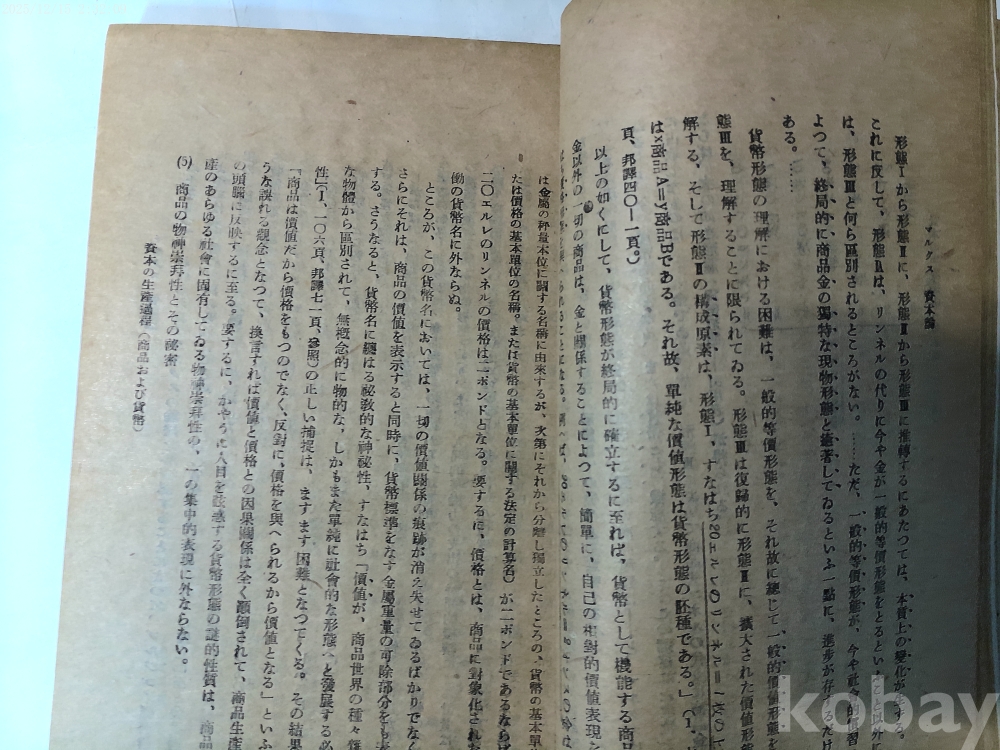 マルクス 資本論
形態Ⅰから形態Ⅱに、形態Ⅱから形態Ⅲに推轉するにあたつては、本質上の變化が
これに反して、形態Ⅳは、リンネルの代りに今や金が一般的等價形態をとるとい
は、形態Ⅲと何ら區別されるところがない。……ただ、一般的等價形態が、今や社會的
よつて、終局的に商品金の獨特な現物形態と癒著してゐるといふ一點に、進步が存するだけ
ある。……
貨幣形態の理解における困難は、一般的等價形態を、それ故に總じて一般的價値形態を
態Ⅲを、理解することに限られてゐる。形態Ⅲは復歸的に形態Ⅱに、擴大された價値形
解する、そして形態Ⅱの構成原素は、形態Ⅰ、すなはち20エルレのリンネル＝
はx商品A＝y商品Bである。それ故、單純な價値形態は貨幣形態の胚種である。」(Ⅰ、
頁、邦譯四〇―一頁。)
以上の如くにして、貨幣形態が終局的に確立するに至れば、貨幣として機能する商品
金以外の一切の商品は、金と關係することによつて、簡單に、自己の相對的價値表現を
は金屬の秤量本位に關する名稱に由來するが、次第にそれから分離し獨立したところの、貨幣の基本單
たは價格の基本單位の名稱。または貨幣の基本單位に關する法定の計算名)が二ポンドであるならば
二〇エルレのリンネルの價格は二ポンドとなる。要するに、價格とは、商品に對象化され
働の貨幣名に外ならぬ。
ところが、この貨幣名においては、一切の價値關係の痕跡が消え失せてゐるばかりでなく
さらにそれは、商品の價値を表示すると同時に、貨幣標準をなす金屬重量の可除部分をも
する。さうなると、貨幣名に纏はる祕敎的な神祕性、すなはち「價値が、商品世界の種々
な物體から區別されて、無槪念的に物的な、しかもまた單純に社會的な形態へと發展する必
性」(Ⅰ、一〇六頁、邦譯七一頁、參照)の正しい捕捉は、ますます困難となつてくる。その結果
「商品は價値だから價格をもつのでなく、反對に、價格を與へられるから價値となる」といふ
うな誤れる觀念となつて、換言すれば價値と價格との因果關係は全く顚倒されて、商品生產
の頭腦に反映するに至る。要するに、かやうに人目を眩惑する貨幣形態の謎的性質は、商品
產のあらゆる社會に固有してゐる物神崇拜性の、一の集中的表現に外ならない。
(5) 商品の物神崇拜性とその祕密
資本の生產過程(商品および貨幣)
kobay